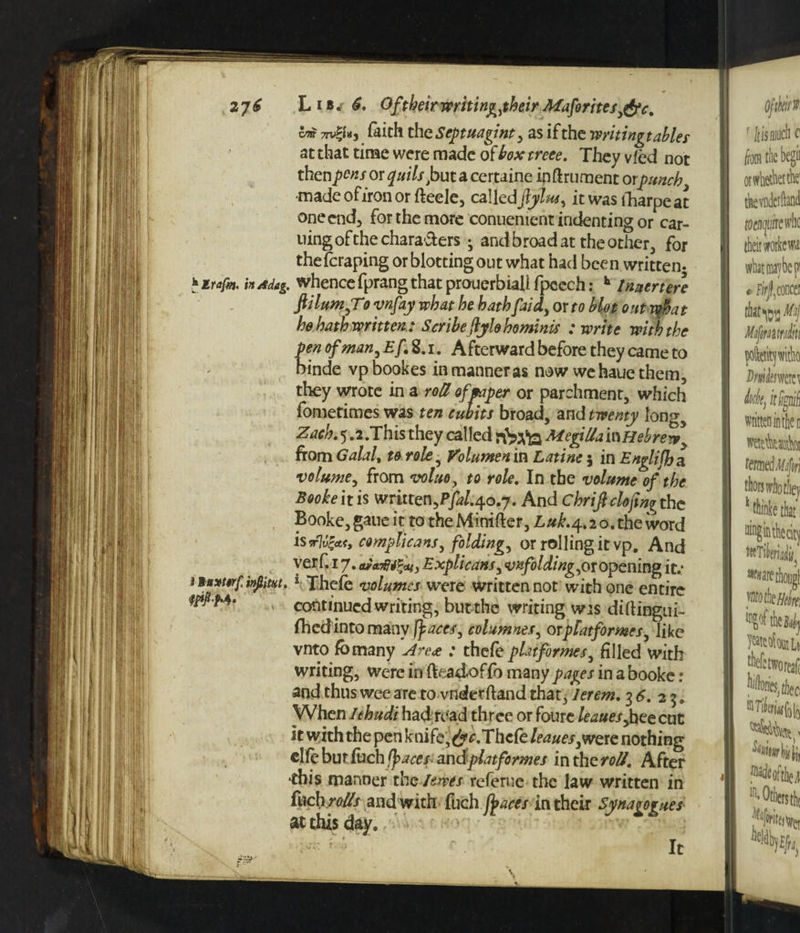 276 LIB. 6. Of their writing, their Maſorites, &c.
ἐπὶ πυξίω, ſaith the Septuagint, as if the writing tables
at that time were made of box treee. They vſed not
then pens or quils, but a certaine inſtrument or punch,
made of iron or ſteele, called ſtylus, it was ſharpe at
one end, for the more conuenient indenting or car-
uing of the characters ; and broad at the other, for
the ſcraping or blotting out what had been written:
h Eraſm. in Adag. whence ſprang that prouerbiall ſpeech : h Inuertere
ſtilum, To vnſay what he hath ſaid, or to blot out what
he hath written: Scribe ſtylo hominis : write with the
pen of man, Eſ. 8.1. Afterward before they came to
binde vp bookes in manner as now we haue them,
they wrote in a roll of paper or parchment, which
ſometimes was ten cubits broad, and twenty long,
Zach. 5.2. This they called מגלה Megilla in Hebrew,
from Galal, to role, Volumen in Latine ; in Engliſh a
volume, from voluo, to role. In the volume of the
Booke it is written, Pſal.40.7. And Chriſt cloſing the
Booke, gaue it to the Miniſter, Luk.4.20. the word
is πτύξας, complicans, folding, or rolling it vp. And
verſ. 17. ἀναπτύξας, Explicans, vnfolding, or opening it:
i Buxtorf. inſtitut. i Theſe volumes were written not with one entire
epiſt. p.4. continued writing, but the writing was diſtingui-
ſhed into many ſpaces, columnes, or platformes, like
vnto ſo many Areæ : theſe platformes, filled with
writing, were in ſtead of ſo many pages in a booke :
and thus wee are to vnderſtand that, Ierem. 36. 23.
When Iehudi had read three or foure leaues, hee cut
it with the penknife, &c. Theſe leaues, were nothing
elſe but ſuch ſpaces and platformes in the roll. After
this manner the Iewes reſerue the law written in
ſuch rolls and with ſuch ſpaces in their Synagogues
at this day.
It
It is much c
from the begi
or whether the
the vnderſtand
to enquire whc
their worke wa
what may be p
Firſt, concer